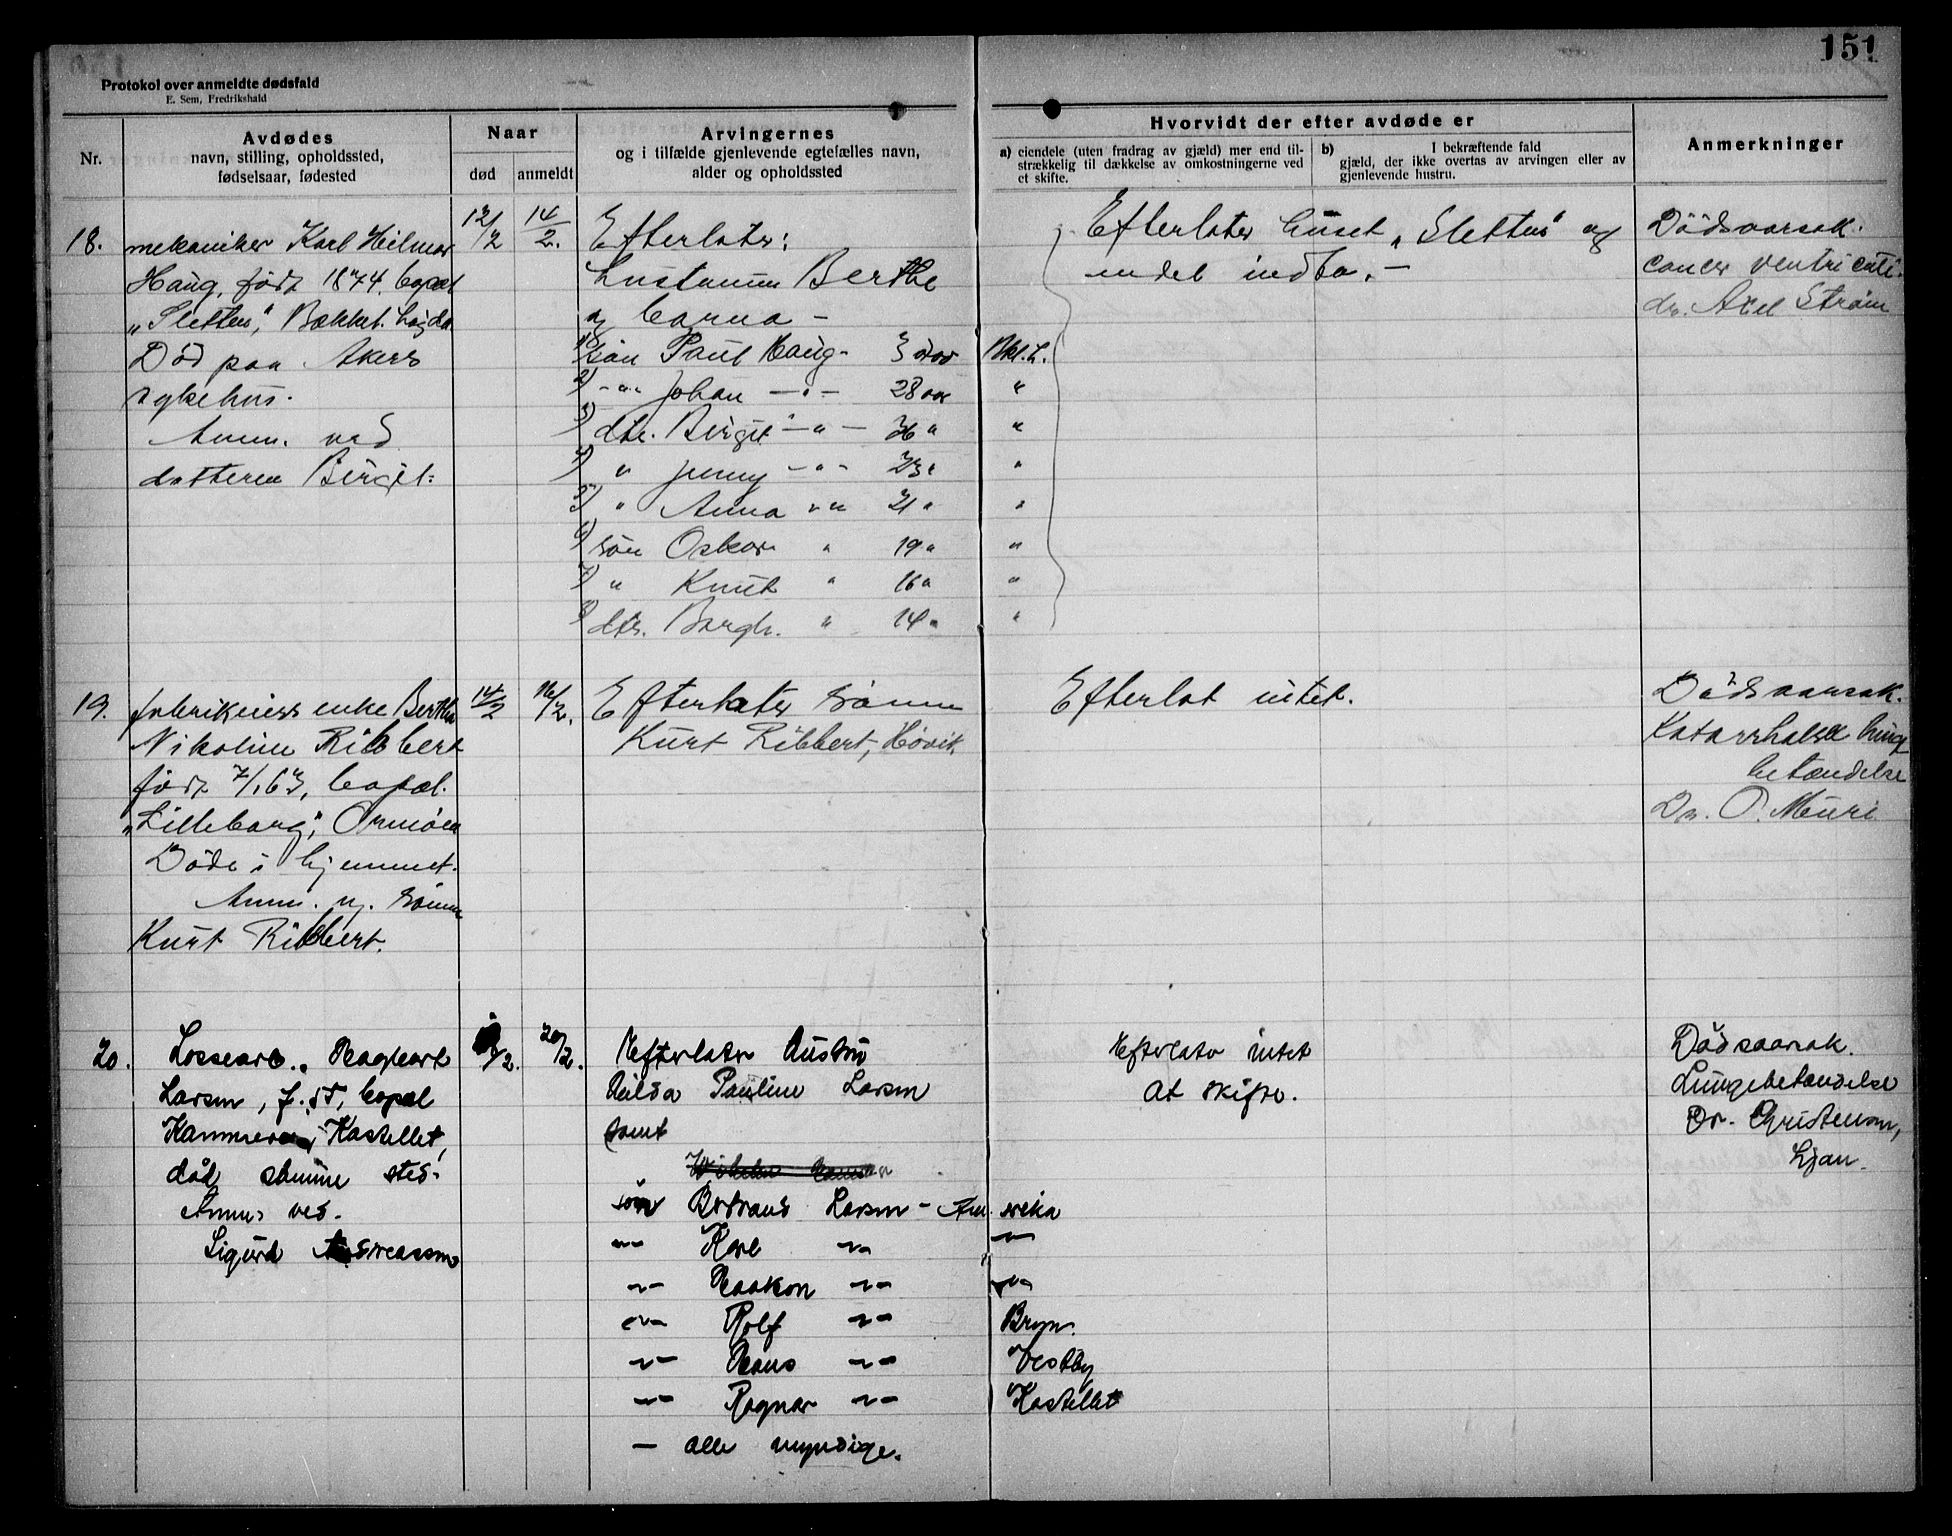 151
Protokol over anmeldte dødsfald
E. Sem, Fredrikshald
Nr.
Avdødes
navn, stilling, opholdssted,
fødselsaar, fødested
Naar
død
anmeldt
Arvingernes
og i tilfælde gjenlevende egtefælles navn,
alder og opholdssted
Hvorvidt der efter avdøde er
a) eiendele (uten fradrag av gjæld) mer end til-
strækkelig til dækkelse av omkostningerne ved
et skifte.
b) I bekræftende fald
gjæld, der ikke overtas av arvingen eller av
gjenlevende hustru.
Anmerkninger
18.
mekaniker Karl Hilmar
Haug, født 1874, bopæl
"Sletten",
Død paa Akers
sykehus.
Anm. ved
datteren Birgit.
12/2
14/2.
Efterlater:
hustruen Berthe
og barna –
1) søn Paul Haug - Bkl. L.
2) -"- Johan -"- 28 aar "
3) dtr. Birgit -"- "
4) " Jenny -"- 23 " "
5) " Anna "" 21 " "
6) søn Oskar " 19 " "
7) " Knut " 16 " "
8) dtr. Borgh. " 14 " "
Efterlater huset "Sletten" og
endel indbo. –
Dödsaarsak.
cancer ventriculi.
dr. Axel Strøm
19.
fabrikeiers enke Bertha
Nikoline Ribbert
født 7/1 63, bopæl.
"Lilleborg", Ormöen
Döde i hjemmet.
Anm. av sønnen
Kurt Ribbert.
14/2
16/2.
Efterlater sønnen
Kurt Ribbert, Høvik
Efterlot intet.
Dödsaarsak.
Katarrhalsk lunge
betændelse
Dr. O. Meuri
20.
Lossearb. Hagbart
Larsen, f. 57, bopæl
Kastellet,
död samme sted.
Anm. ved.
Sigurd Andreassen
/2.
20/2.
Efterlater Hustru
Hilda Pauline Larsen
samt
søn Bertrand Larsen - Amerika
-"- Karl -"- -"-
-"- Haakon -"- -"-
-"- Rolf -"- Bryn.
-"- Hans -"- Vestby
-"- Ragnar -"- Kastellet
– alle myndige.
Efterlater intet
at skifte.
Dödsaarsak.
Lungebetændelse
Dr. Christensen,
Ljan.